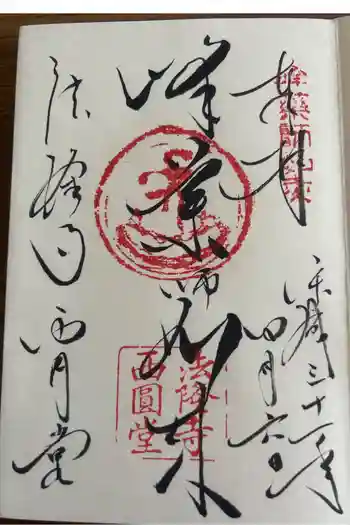 奉拝
峰薬師如来
平成三十一年
四月六日
峰薬師如来
法隆寺
西圓堂
法隆寺西円堂